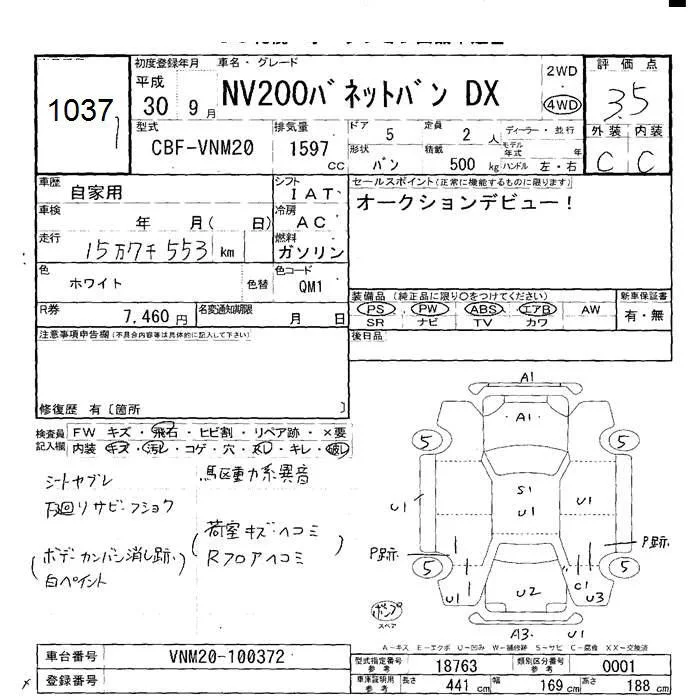 1037
初度登録年月 車名・グレード
平成 30 9月
NV200バネットバン DX
2WD
4WD
評価点
3.5
外装 内装
C C
型式
CBF-VNM20
排気量
1597 CC
ドア 5 定員 2人 ディーラー・並行
モデル年式 年
形状 バン 積載 500kg ハンドル 左・右
車歴 自家用
シフト IAT
車検 年 月( 日)
冷房 AC
走行 15万7千553 km
燃料 ガソリン
色 ホワイト 色替
色コード QM1
R券 7,460円 名変通知期限 月 日
セールスポイント(正常に機能するものに限ります)
オークションデビュー!
装備品(純正品に限り○をつけてください) 新車保証書
PS PW ABS エアB AW 有・無
SR ナビ TV カワ
後日品
注意事項申告欄(不具合内容等は具体的に記入して下さい)
修復歴 有〔箇所 〕
検査員記入欄 FW キズ・飛石・ヒビ割・リペア跡・×要
内装 キズ・汚レ・コゲ・穴・スレ・キレ・破レ
シートヤブレ
下廻リサビ・フショク
(ボデーカンバン消し跡、白ペイント)
駆動力系異音
(荷室キズ・ヘコミ
Rフロアヘコミ)
A1
A1
5 5
S1
U1
U1 U1
P跡 P跡
5 5
U1 U2 C1 U3
パンプ
スペア
A3 U1
A-キズ E-エクボ U-凹み W-補修跡 S-サビ C-腐食 XX-交換済
車台番号 VNM20-100372
登録番号
型式指定番号 参考 18763 類別区分番号 参考 0001
車庫証明用 参考 長さ 441cm 幅 169cm 高さ 188cm